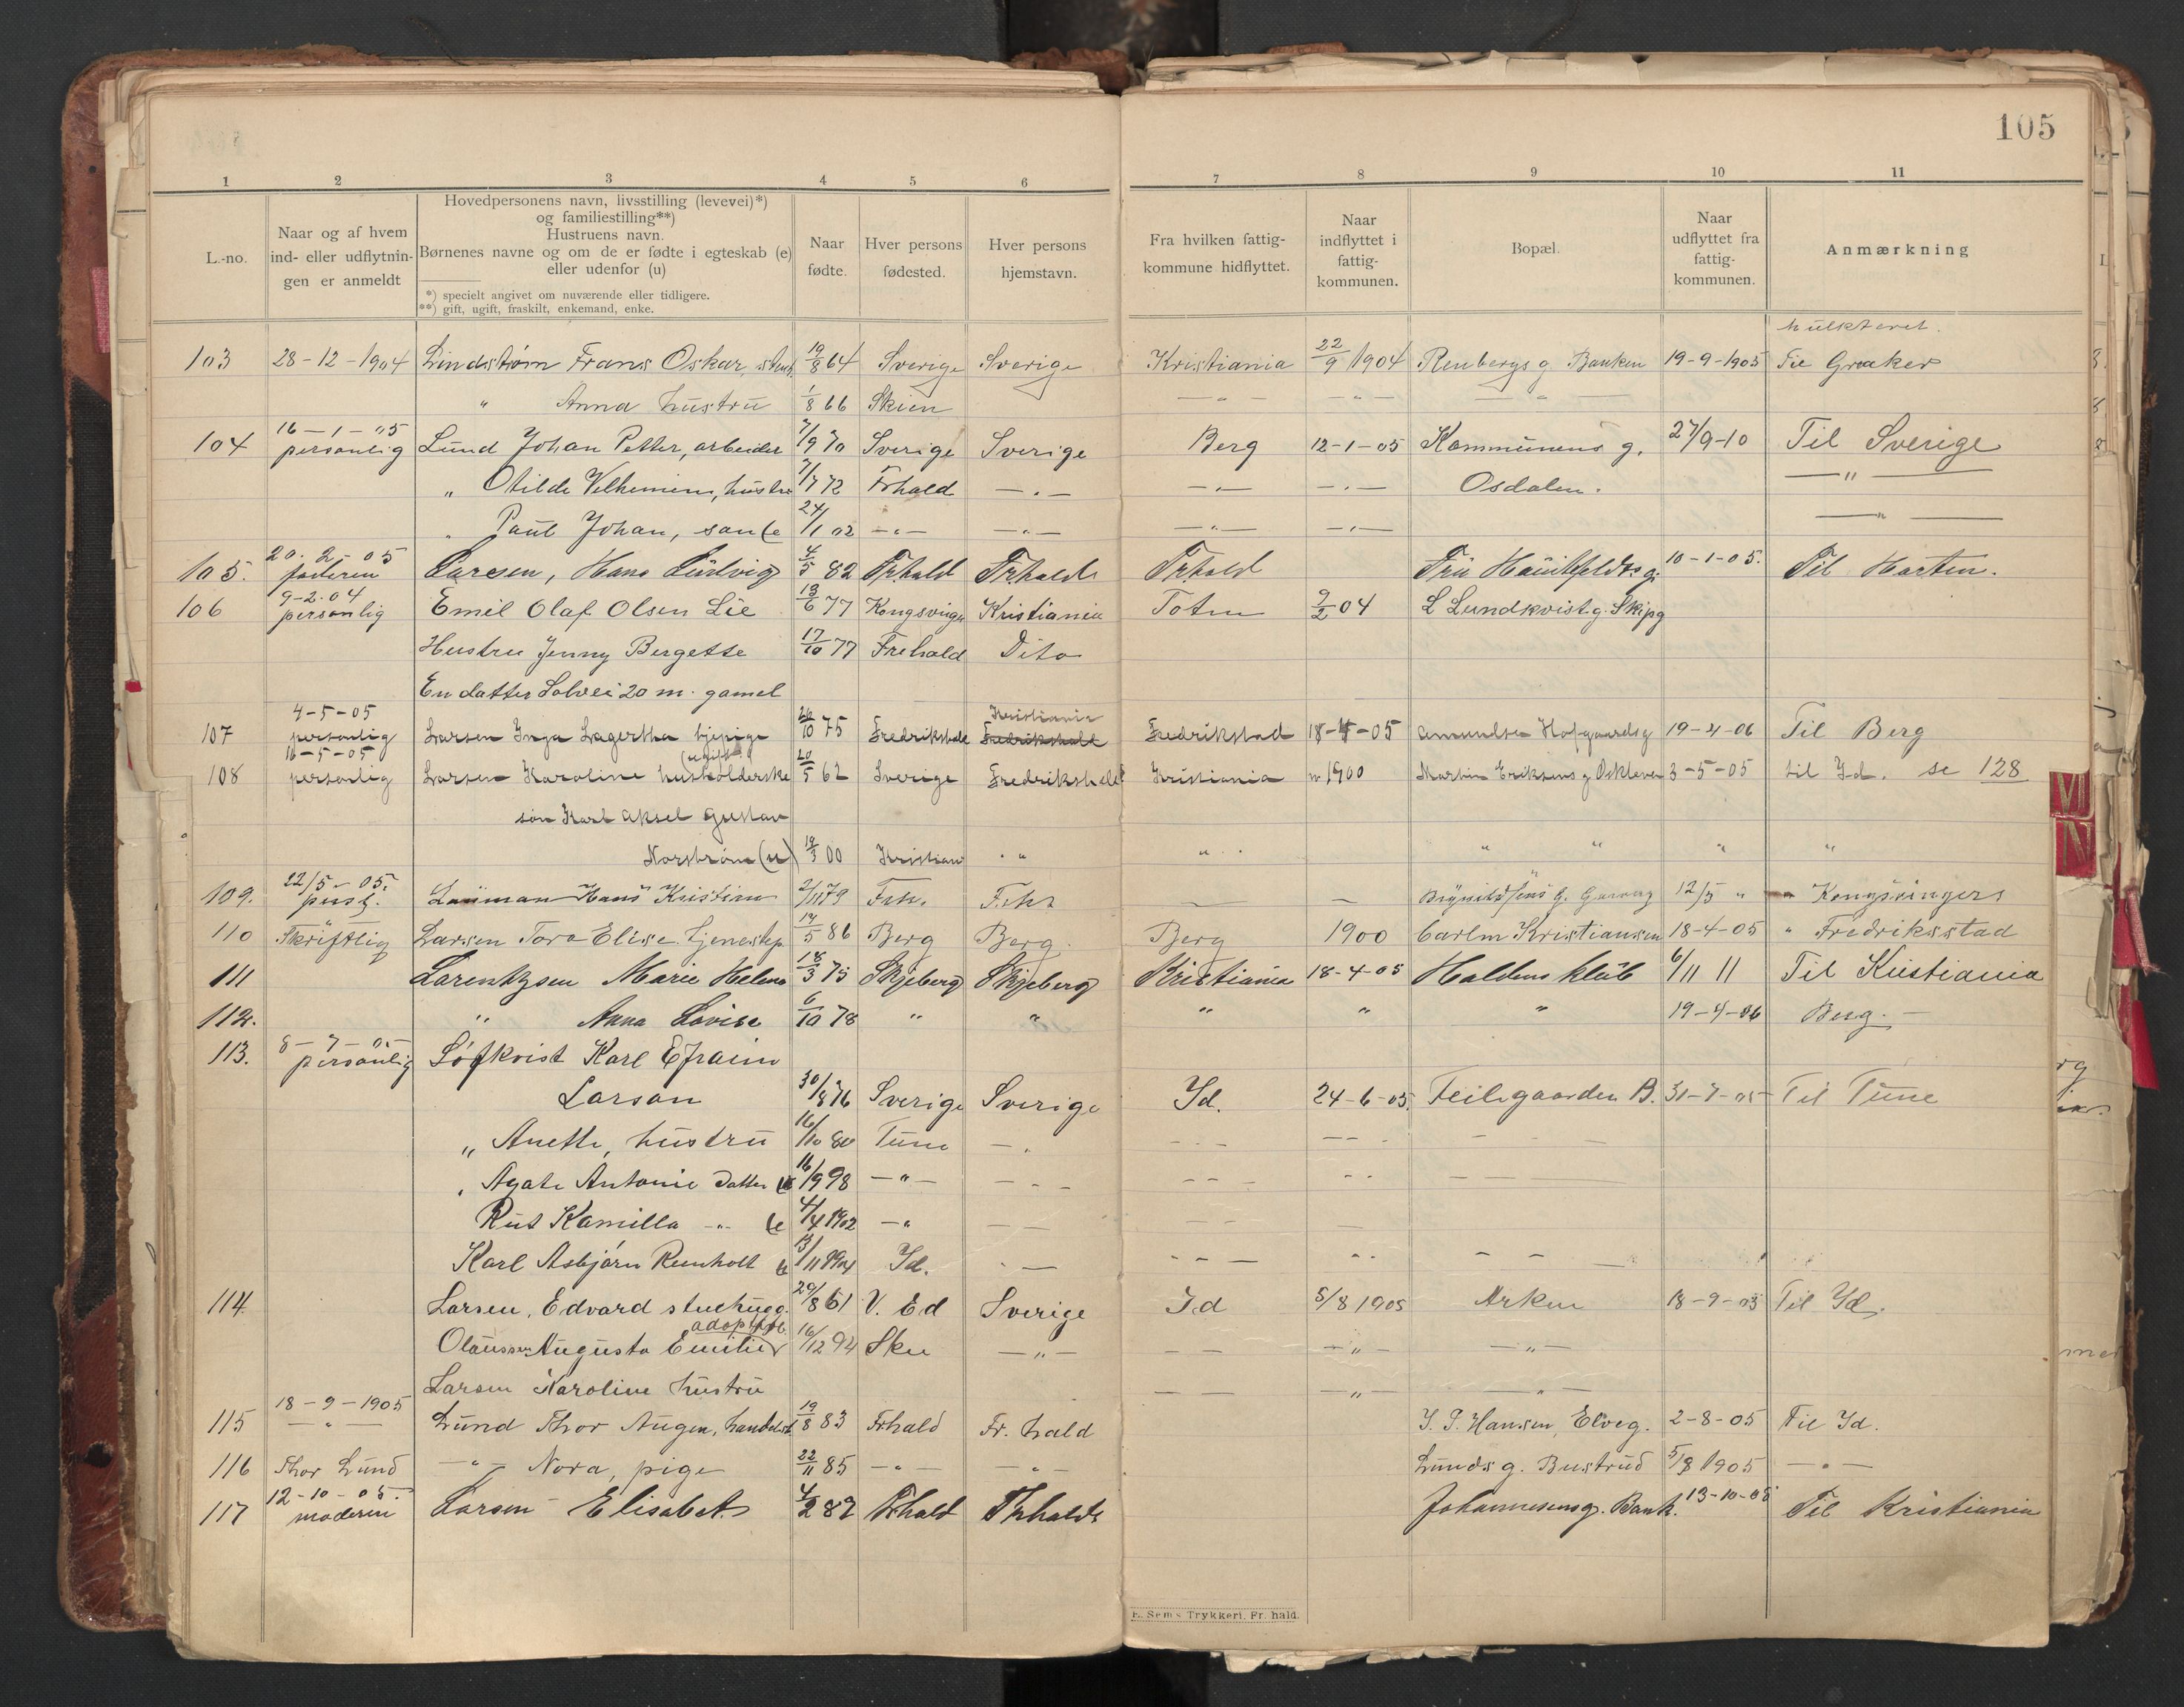 105
1 2 3 4 5 6 7 8 9 10 11
L.-no.
Naar og af hvem
ind- eller udflytnin-
gen er anmeldt
Hovedpersonens navn, livsstilling (levevei)*)
og familiestilling**)
Hustruens navn.
Børnenes navne og om de er fødte i egteskab (e)
eller udenfor (u)
*) specielt angivet om nuværende eller tidligere.
**) gift, ugift, fraskilt, enkemand, enke.
Naar
fødte.
Hver persons
fødested.
Hver persons
hjemstavn.
Fra hvilken fattig-
kommune hidflyttet.
Naar
indflyttet i
fattig-
kommunen.
Bopæl.
Naar
udflyttet fra
fattig-
kommunen.
Anmærkning
103 28-12-1904 Lindstrøm Frans Oskar, 19/8 64 Sverige Sverige Kristiania 22/9 1904 Renbergs g Banken 19-9-1905 Til Greaker
" Anna hustru 1/8 66 Skien — " — — " — — " —
16-1-05
104 personlig Lund Johan Petter, arbeider 7/9 70 Sverige Sverige Berg 12-1-05 Kommunens g. 27/9-10 Til Sverige
" Otilde Velhemine, hustru 7/7 72 Frhald — " — — " — — " — Osdalen. — " —
" Paul Johan, søn (e 24/1 02 — " — — " — — " — — " — — " —
20-2-05
105. faderen Larsen, Hans Ludvig 4/5 82 Frhald Frhald Frhald Fru Hauikfeldts g. 10-1-05. Til Horten.
9-2-04
106 personlig Emil Olaf Olsen Lie 13/6 77 Kongsvinger Kristiania Toten 9/2 04 L Lundkvist g. Skipg
Hustru Jenny Bergette 17/10 77 Frehald Dito
En datter Solvei 20 m. gamel
4-5-05 Kristiania
107 personlig Larsen Inga Lagertha tjepige 26/10 75 Fredrikshald Fredrikshald Fredrikstad 18-4-05 Amundsen Hofgaardsg 19-4-06 Til Berg
16-5-05 (ugift)
108 personlig Larsen Karoline husholderske 20/5 62 Sverige Fredrikshald Kristiania 1900 Martin Eriksens g Oskleven 3-5-05 til Id. se 128
søn Karl Aksel Gustav
Norstrøm (u) 19/3 00 Kristian " " " " " " "
22/5-05.
109. persl. Lauman Hans Kristian 2/11 79 Frh. Frh — — 12/5 " " Kongsvingers
110 Skriftlig Larsen Tora Elise tjenestep 14/5 86 Berg Berg Berg 1900 Carlm Kristiansen 18-4-05 " Fredriksstad
111 Larentzsen Marie Helene 18/3 75 Skjeberg Skjeberg Kristiania 18-4-05 Haldens klub 6/11 11 Til Kristiania
112. " Anna Lovise 6/10 78 " " " " " 19-4-06 Berg. —
113. personlig Løfkvist Karl Efraim
Larson 30/8 76 Sverige Sverige Id. 24-6-05. Teilegaarden B. 31-7-05 Til Tune
" Anette, hustru 16/10 80 Tune — " — — — — — —
" Agate Antonie datter 16/9 98 — " — — — — — — —
Rut Kamilla — " — (e 4/4 1902 — " — — — —
Karl Asbjørn Reinholt 13/11 1904 Id. — — — — —
114. Larsen, Edvard stenhugg. 20/8 61 V. Ed Sverige Id 5/8 1905 Arken 18-9-05 Til Id.
Olaussen Augusta Emilie 16/12 94 — " — — — — " — — " —
Larsen Karoline hustru — — — " — — " —
18-9-1905
115 — " — Lund Thor Augen, handelsb 19/8 83 Frhald Fr. hald J. P. Hansen, Elveg. 2-8-05 Til Id.
116 Thor Lund — " — Nora, pige 22/11 85 — " — — " — Lunds g. Bustrud 5/8 1905 — " —
12-10-05.
117 moderen Larsen Elisabet 4/2 87 Frhald Frhald Johannesens g. Bank. 13-10-05 Til Kristiania
E. Sems Trykkeri, Fr. hald.